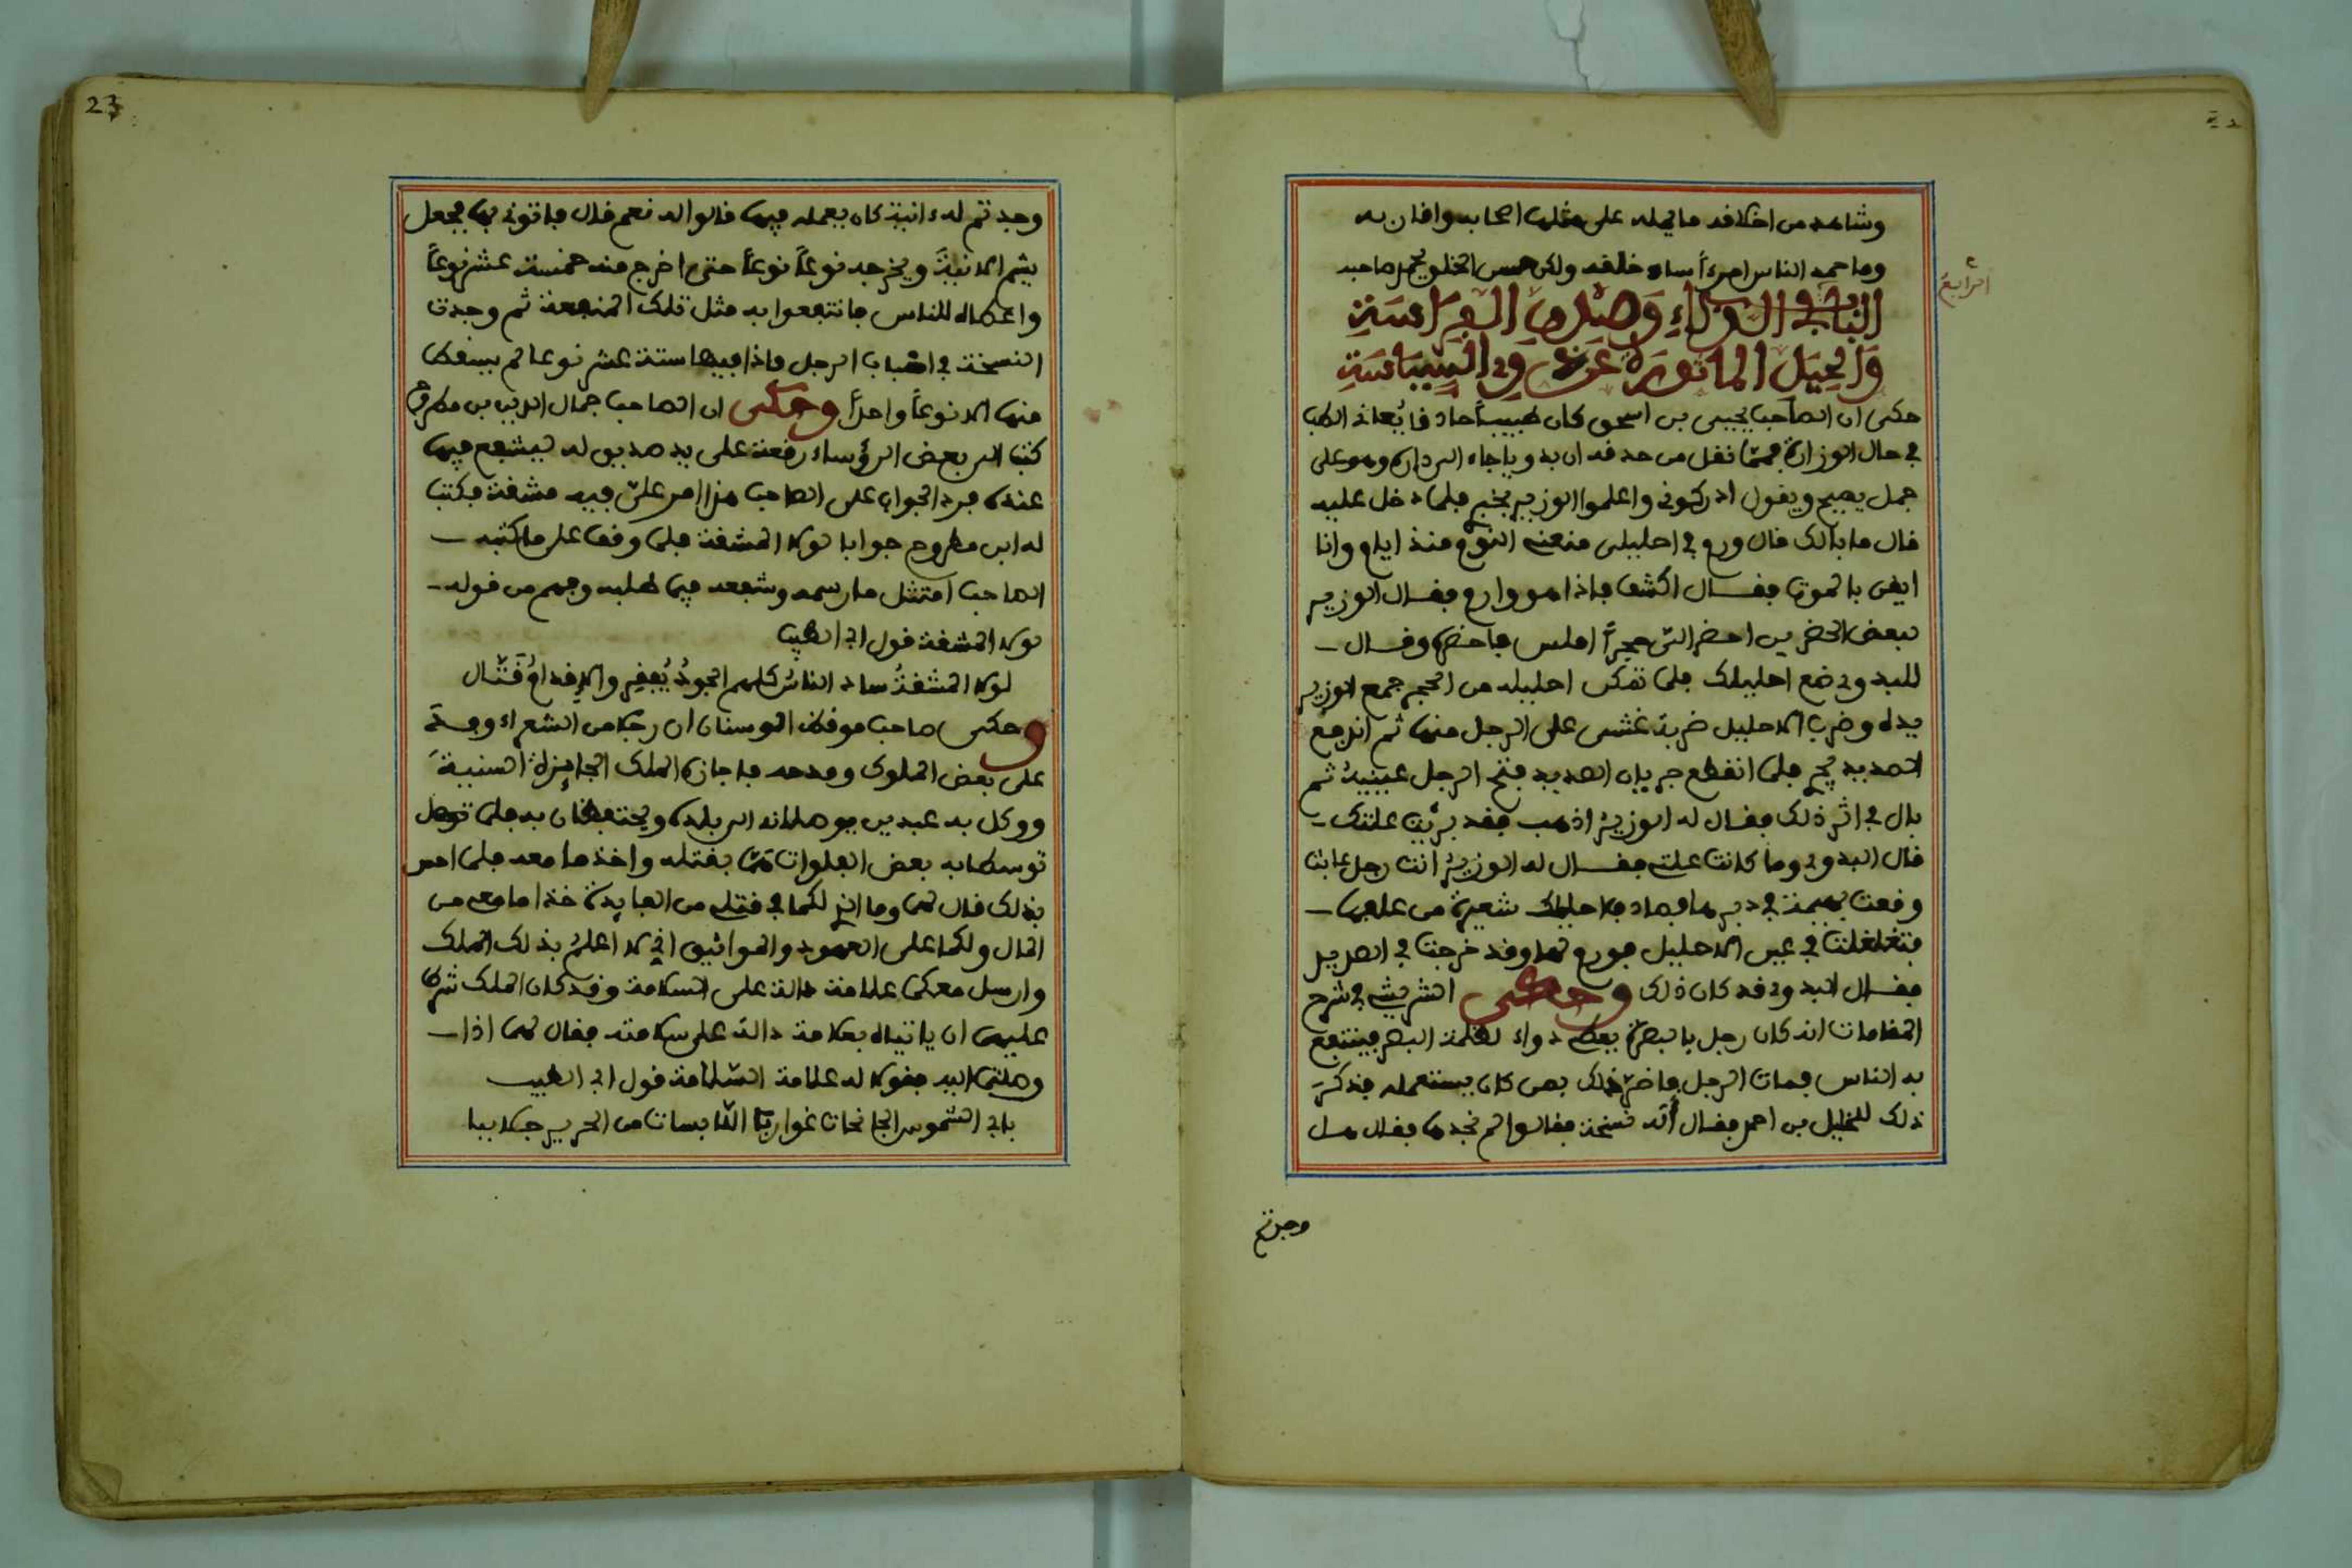 وشاهد من اخلاقه ما يحمله على مثلها اصحابه واقرانه
وما حمد الناس امرءًا ساء خلقه ولكن حسن الخلق يحمد صاحبه
الرابع
الباب في الذكاء وصدق الفراسة
والحيل الماثورة عن ذوي السياسة
حكى ان الصاحب يحيى بن اسحق كان طبيبًا حاذقا يُعان الطب
في حال الوزارة فمما نقل من حذقه ان بدويا جاء الى داره وهو على
جمل يصيح ويقول ادركوني واعلموا الوزير بخبري فلما دخل عليه
قال ما بالك قال ورم في احليلي منعني النوم منذ ايام وانا
ايقن بالموت فقال اكشف فاذا هو وارم فقال الوزير
لبعض الحضرين احضر اليّ حجرًا املس فاحضره وقال
للبدوي ضع احليلك فلما تمكن احليله من الحجر جمع الوزير
يده وضرب الاحليل ضربة غشي على الرجل منها ثم اندفع
الصديد يجري فلما انقطع جريان الصديد فتح الرجل عينيه ثم
بال في اثر ذلك فقال له الوزير اذهب فقد برئت علتك
قال البدوي وما كانت علتي فقال له الوزير انت رجل عابث
وقعت بهيمة في دبرها فصادف احليلك شعيرة من علفها
فتغلغلت في عين الاحليل فورم لها وقد خرجت في الصديد
فقال البدوي قد كان ذلك وحكى الشريشي في شرح
المقامات انه كان رجل بالبصرة يعطي دواء لظلمة البصر فينتفع
به الناس فمات الرجل فاضرّ ذلك بمن كان يستعمله فذكر
ذلك للخليل بن احمد فقال أله نسخة فقالوا لم نجدها فقال هل
وجدتم
23
وجدتم له ءانية كان يعمله فيها قالوا له نعم قال فاتوني بها فجعل
يشم الانية ويخرجه نوعًا نوعًا حتى اخرج منه خمسة عشر نوعًا
واعطاه للناس فانتفعوا به مثل تلك المنفعة ثم وجدت
النسخة في كتاب الرجل فاذا فيها ستة عشر نوعا لم يسقط
منها الا نوعًا واحدًا وحكى ان الصاحب جمال الدين بن مطروح
كتب الى بعض الرؤساء رقعة على يد صديق له يشفع فيها
عنده فرد الجواب على الصاحب هذا امر عليّ فيه مشقة فكتب
له ابن مطروح جوابا لولا المشقة فلما وقف على ما كتبه
الصاحب امتثل ما رسمه وشفعه فيما طلبه وفهم من قوله
لولا المشقة قول ابي الطيب
لولا المشقةُ ساد الناسُ كلهم الجودُ يُفقِر والاقدامُ قتّال
وحكى صاحب موقظ الوسنان ان رجلا من الشعراء وفد
على بعض الملوك ومدحه فاجازه الملك الجايزة السنية
ووكل به عبدين يوصلانه الى بلده ويحتفظان به فلما
توسطا به بعض الفلوات همّا بقتله واخذ ما معه فلما احس
بذلك قال لهما وما لكما في قتلي من الفايدة خذا ما معي من
المال ولكما علي العهود والمواثيق اني لا اعلم بذلك الملك
وارسل معكما علامة دالة على السلامة وقد كان الملك شرط
عليهما ان ياتياه بعلامة دالة على سلامته فقال لهما اذا
وصلتما اليه فقولا له علامة السلامة قول ابي الطيب
بابي الشموس الجانحات غواربا اللابسات من الحرير جلاببا